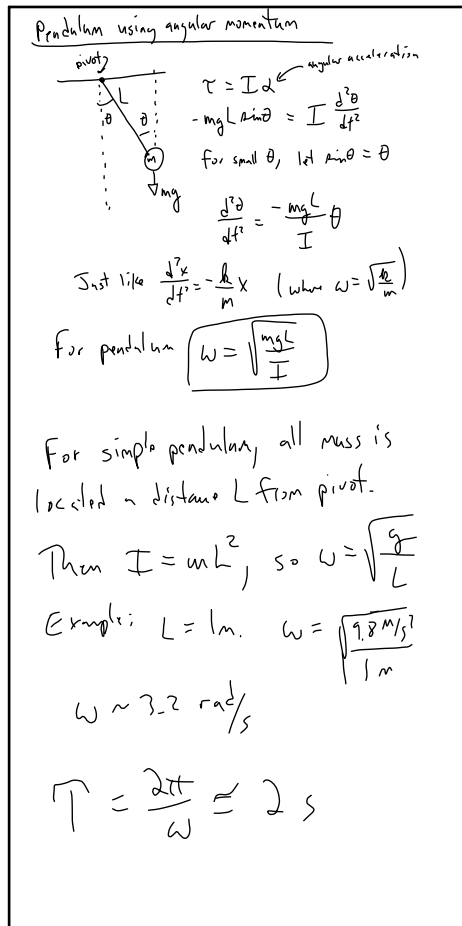 Pendulum using angular momentum
pivot
L
θ
θ
m
mg
angular acceleration
τ = Iα
-mgL sinθ = I d²θ/dt²
For small θ, let sinθ = θ
d²θ/dt² = -mgL/I θ
Just like d²x/dt² = -k/m x (where ω = √(k/m))
For pendulum ω = √(mgL/I)
For simple pendulum, all mass is
located a distance L from pivot.
Then I = mL², so ω = √(g/L)
Example: L = 1m. ω = √(9.8 m/s²/1 m)
ω ~ 3.2 rad/s
T = 2π/ω ≅ 2 s